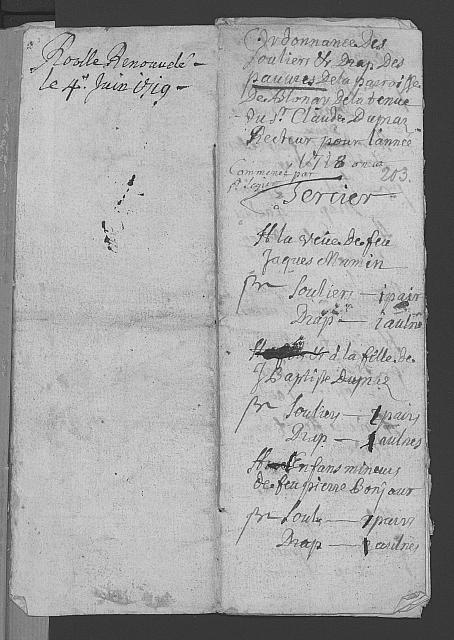 Roolle Renouvelé
le 4e. Juin 1719
Ordonnance Des
Soulier & Drap Des
pauvres De la parroisse
De Blonay De la tenue
Du Sr. Claude Dupraz
Recteur pour l'année
1718
203.
Commencé par
Tercier
A la veuve de feu
Jaques Mamin
pr Souliers — 1 pair
Drap — 1 aulne
à la fille de
J Baptiste Dupraz
pr Souliers — 1 pairs
Drap — 1 aulnes
Enfans mineurs
de feu pierre Bonjour
pr Soul — 1 pairs
Drap — aulnes